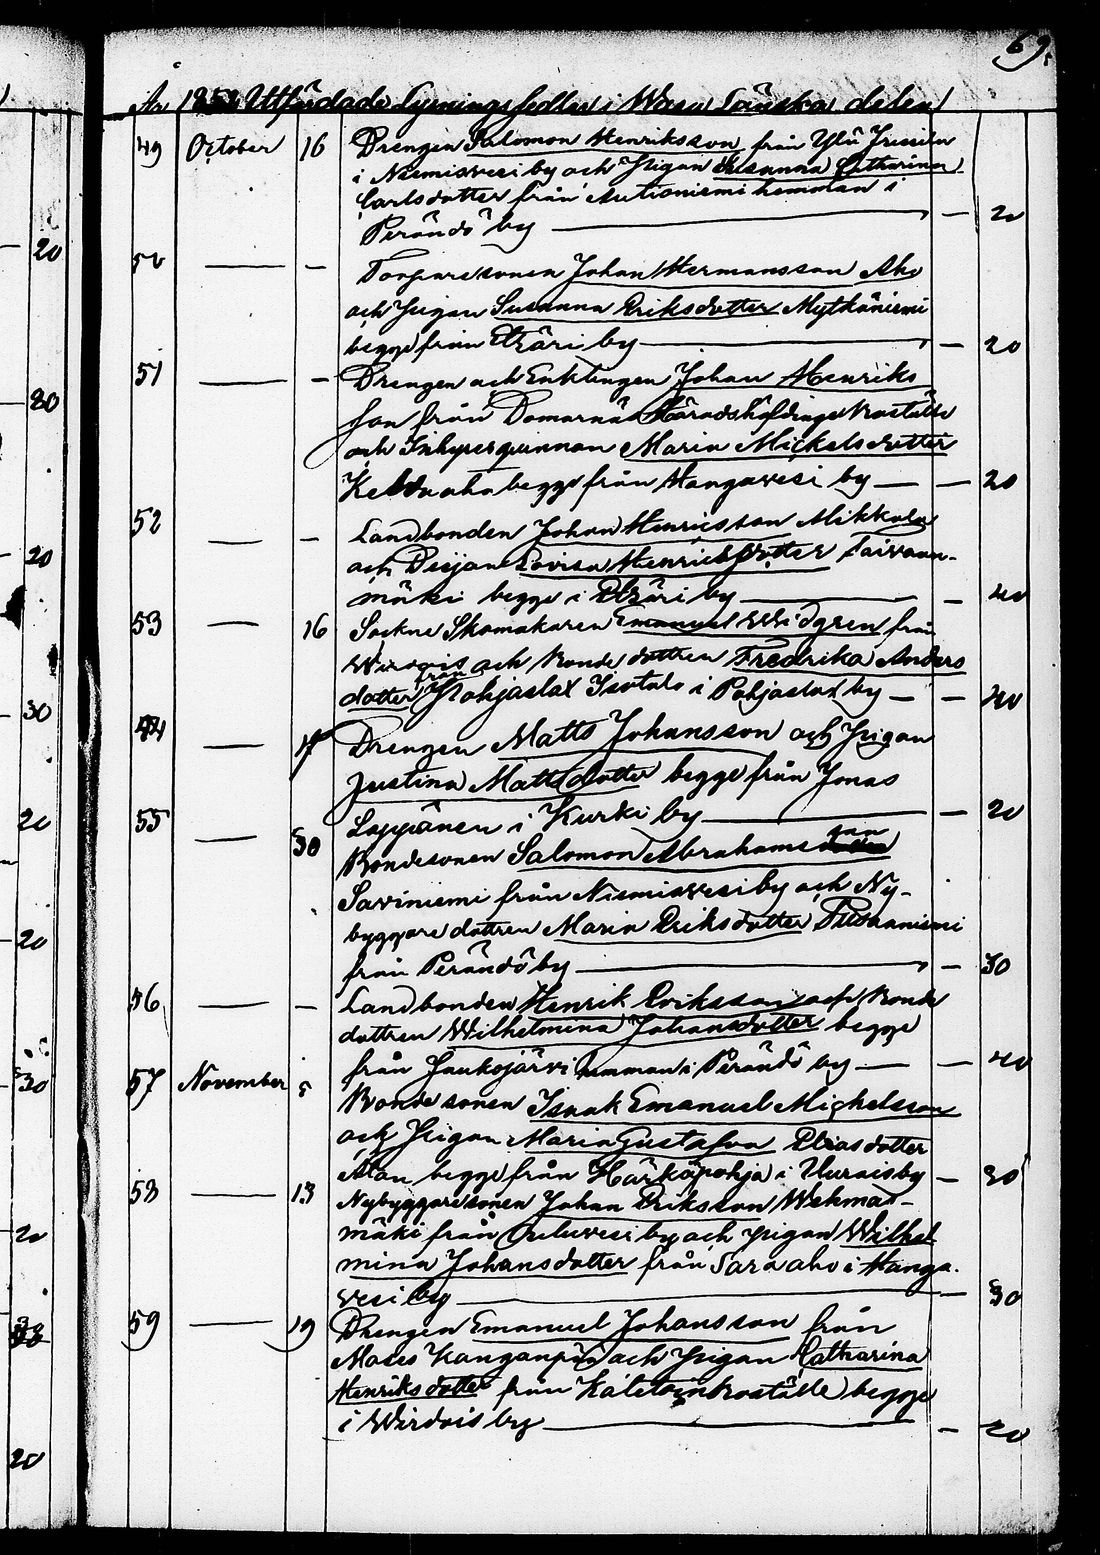 69.
År 1852 Utfärdade Lysnings sedlar i Wasa Länska delen
20
80
20
30
20
20
30
20
20
49 October 16 Drengen Salomon Henriksson från Ylä
i Niemisvesi by och Pigan Susanna Catharina
Carlsdotter från Autioniemi hemman i
Perändö by — 20
50 — – Torparesonen Johan Hermansson Aho
och Pigan Susanna Eriksdotter Mytkäniemi
begge från Etzäri by — 20
51 — – Drengen och Enklingen Johan Henriks
son från Domarnäs Häradshöfdinge Boställe
och Inhysesqvinnan Maria Mickelsdotter
aho begge från Hangavesi by — 20
52 — – Landbonden Johan Henricsson Mikkola
och Deijan Lovisa Henricsdotter Taivaan-
mäki begge i Etzäri by — 40
53 — 16 Sockne Skomakaren Emanuel Widgren från
Wirdois och Bonde dottren Fredrika Anders
dotter från Pohjaslax Isotalo i Pohjaslax by — 40
54 — 17 Drengen Matts Johansson och Pigan
Justina Mattsdotter begge från Jonas
55 Lappänen i Kurki by — 20
— 30 Bondesonen Salomon Abrahamsson
Saviniemi från Niemisvesi by och Ny-
byggare dottren Maria Eriksdotter
från Perändö by — 30
56 — – Landbonden Henrik Eriksson och Bonde
dottren Wilhelmina Johansdotter begge
från Jaukojärvi hemman i Perändö by — 40
57 November 5 Bonde sonen Isaak Emanuel Michelsson
och Pigan Maria Gustafva Eliasdotter
Alan begge från Härköpohja i by — 30
58 — 13 Nybyggaresonen Johan Eriksson Wehmas-
mäki från Ouluvesi by och Pigan Wilhel
mina Johansdotter från Saraaho i Hanga-
vesi by — 30
59 19 Drengen Emanuel Johansson från
Moses Kanganpää och Pigan Catharina
Henriksdotter från boställe begge
i Wirdois by — 20